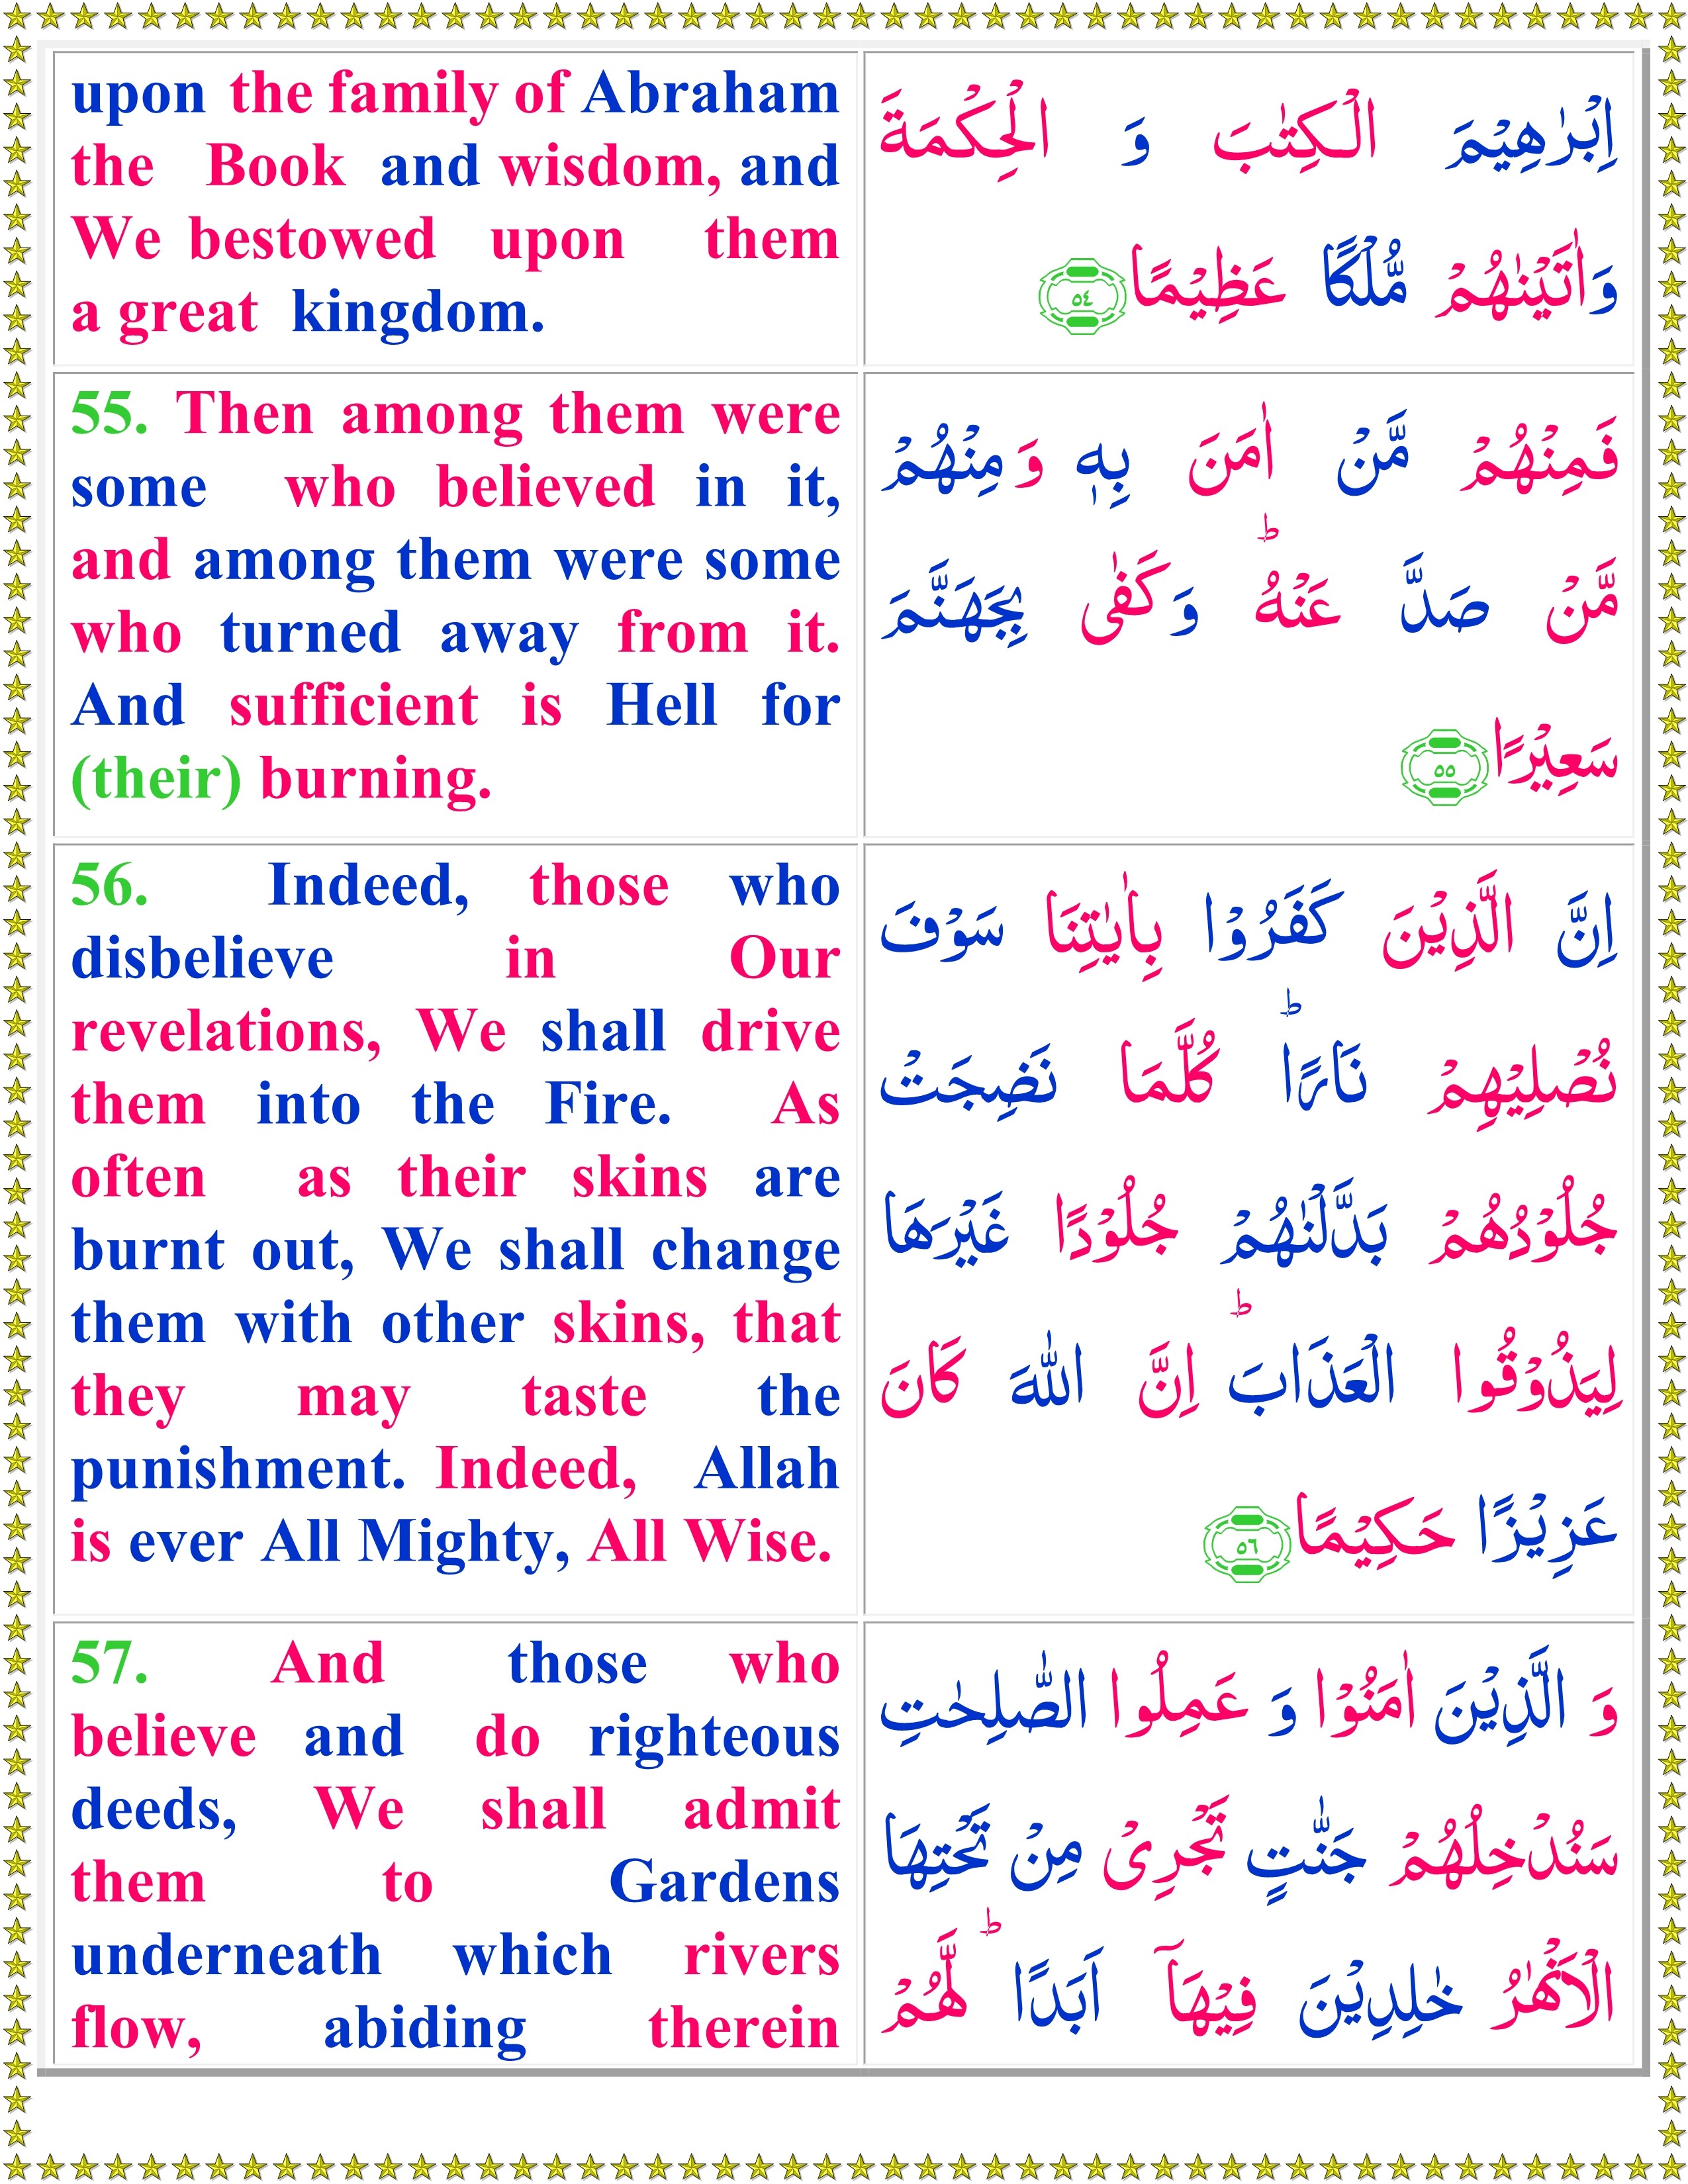 upon the family of Abraham
the Book and wisdom, and
We bestowed upon them
a great kingdom.
اِبْرٰهِيْمَ الْكِتٰبَ وَ الْحِكْمَةَ
وَاٰتَيْنٰهُمْ مُّلْكًا عَظِيْمًا ٥٤
55. Then among them were
some who believed in it,
and among them were some
who turned away from it.
And sufficient is Hell for
(their) burning.
فَمِنْهُمْ مَّنْ اٰمَنَ بِهٖ وَ مِنْهُمْ
مَّنْ صَدَّ عَنْهُ ؕ وَ كَفٰى بِجَهَنَّمَ
سَعِيْرًا ٥٥
56. Indeed, those who
disbelieve in Our
revelations, We shall drive
them into the Fire. As
often as their skins are
burnt out, We shall change
them with other skins, that
they may taste the
punishment. Indeed, Allah
is ever All Mighty, All Wise.
اِنَّ الَّذِيْنَ كَفَرُوْا بِاٰيٰتِنَا سَوْفَ
نُصْلِيْهِمْ نَارًا ؕ كُلَّمَا نَضِجَتْ
جُلُوْدُهُمْ بَدَّلْنٰهُمْ جُلُوْدًا غَيْرَهَا
لِيَذُوْقُوا الْعَذَابَ ؕ اِنَّ اللّٰهَ كَانَ
عَزِيْزًا حَكِيْمًا ٥٦
57. And those who
believe and do righteous
deeds, We shall admit
them to Gardens
underneath which rivers
flow, abiding therein
وَ الَّذِيْنَ اٰمَنُوْا وَ عَمِلُوا الصّٰلِحٰتِ
سَنُدْخِلُهُمْ جَنّٰتٍ تَجْرِىْ مِنْ تَحْتِهَا
الْاَنْهٰرُ خٰلِدِيْنَ فِيْهَاۤ اَبَدًا ؕ لَّهُمْ